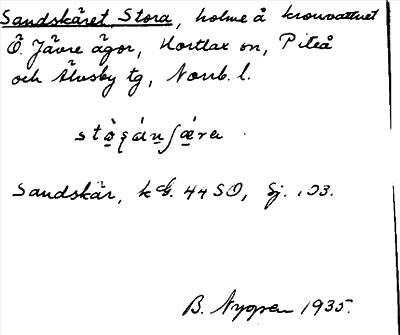 Sandskäret, Stora, holme å kronvattnet
Ö. Jävre ägor, Hortlax sn, Piteå
och Älvsby tg, Norrb. l.
Sandskär, kbl. 44 SO, Sj. 103.
B. Nygren 1935.